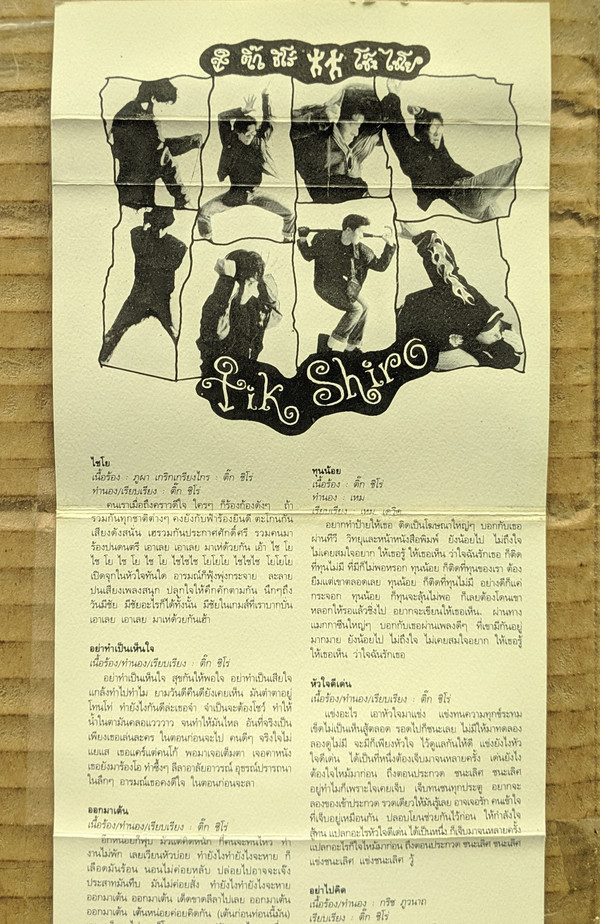 ติ๊ก ชิโร่
tik Shiro
ไชโย
เนื้อร้อง : ภูผา เกริกเกรียงไกร : ติ๊ก ชิโร่
ทำนอง/เรียบเรียง : ติ๊ก ชิโร่
คนเราเมื่อถึงคราวดีใจ ใครๆ ก็ร้องก้องดังๆ ถ้า
รวมกันทุกชาติต่างๆ คงยิ่งกับฟ้าร้องยินดี ตะโกนกัน
เสียงดังสนั่น เฮรวมกันประกาศศักดิ์ศรี รวมคนมา
ร้องปนดนตรี เอาเลย เอาเลย มาเห่ด้วยกัน เอ้า ไช โย
ไช โย ไช โย ไช โย ไชไชไช โยโยโย ไชไชไช โยโยโย
เปิดจุกในหัวใจทันใด อารมณ์ก็ฟุ้งพุ่งกระจาย ละลาย
ปนเสียงเพลงสนุก ปลุกใจให้คึกคักตามกัน นึกๆถึง
วันมีชัย มีชัยอะไรก็ได้ทั้งนั้น มีชัยในเกมส์ที่เราบากบั่น
เอาเลย เอาเลย มาเห่ด้วยกันเฮ้า
อย่าทำเป็นเห็นใจ
เนื้อร้อง/ทำนอง/เรียบเรียง : ติ๊ก ชิโร่
อย่าทำเป็นเห็นใจ สุขกันให้พอใจ อย่าทำเป็นเสียใจ
แกล้งทำไปทำไม ยามวันดีคืนดียังเคยเห็น มันตำตาอยู่
โทนโท่ ทำยังไงกันดีล่ะเธอจ๋า จำเป็นจะต้องโชว์ ทำให้
น้ำในตามันคลอแวววาว จนทำให้มันไหล อันที่จริงเป็น
เพียงเธอเล่นละคร ในตอนก่อนจะไป คนดีๆ จริงใจไม่
แยแส เธอแคร์แต่คนโก้ พอมาเจอเต็มตา เจอคาหนัง
เธอยังมาร้องโอ ทำซึ้งๆ ลีลาอาลัยอาวรณ์ อุธรณ์ปรารถนา
ในลึกๆ อารมณ์เธอคงดีใจ ในตอนก่อนจะลา
ออกมาเต้น
เนื้อร้อง/ทำนอง/เรียบเรียง : ติ๊ก ชิโร่
งานไม่พัก เลยเวียนหัวบ่อย ทำยังไงทำยังไงจะหาย ก็
เลือดมันร้อน นอนไม่ค่อยหลับ ปล่อยไปอาจจะเจ๊ง
ประสาทมันทึบ มันไม่ค่อยสั่ง ทำยังไงทำยังไงจะหาย
ออกมาเต้น ออกมาเต้น เด็ดขาดลีลาไปเลย ออกมาเต้น
ออกมาเต้น เต้นหน่อยค่อยคิดกัน (เต้นก่อนท่อนนี้มัน)
ทุนน้อย
เนื้อร้อง : ติ๊ก ชิโร่
ทำนอง : เหม
อยากทำป้ายให้เธอ ติดเป็นโฆษณาใหญ่ๆ บอกกับเธอ
ผ่านทีวี วิทยุและหน้าหนังสือพิมพ์ ยังน้อยไป ไม่ถึงใจ
ไม่เคยสมใจอยาก ให้เธอรู้ ให้เธอเห็น ว่าใจฉันรักเธอ ก็ติด
ที่ทุนไม่มี ที่มีก็ไม่พอหรอก ทุนน้อย ก็ติดที่ทุนของเรา ต้อง
ยืมแต่เขาตลอดเลย ทุนน้อย ก็ติดที่ทุนไม่มี อย่างดีก็แค่
กระจอก ทุนน้อย ก็ทุนจะลุ้นไม่พอ ก็เลยต้องโดนเขา
หลอกให้รอแล้วชิ่งไป อยากจะเขียนให้เธอเห็น. ผ่านทาง
แมกกาซีนใหญ่ๆ บอกกับเธอผ่านเพลงดีๆ ที่เขามีกันอยู่
มากมาย ยังน้อยไป ไม่ถึงใจ ไม่เคยสมใจอยาก ให้เธอรู้
ให้เธอเห็น ว่าใจฉันรักเธอ
หัวใจดีเด่น
เนื้อร้อง/ทำนอง/เรียบเรียง : ติ๊ก ชิโร่
แข่งอะไร เอาหัวใจมาแข่ง แข่งทนความทุกข์ระทม
เข็ดไม่เป็นเห็นสู้ตลอด รอดไปก็ชนะเลย ไม่มีให้มาทดลอง
ลองดูไม่มี จะมีก็เพียงหัวใจ ไว้ดูแลกันให้ดี แข่งยังไงหัว
ใจดีเด่น ได้เป็นที่หนึ่งต้องเจ็บมาจนหลายครั้ง เด่นยังไง
ต้องใจไหม้มาก่อน ถึงตอนประกวด ชนะเลิศ ชนะเลิศ
อยู่ทำไมก็เพราะใจเคยเจ็บ เจ็บทนชนทุกประตู อยากจะ
ลองของเข้าประกวด รวดเดียวให้มันรู้เลย อาจเจอรัก คนเข้าใจ
ที่เจ็บอยู่เหมือนกัน ปลอบโยนช่วยกันไว้ก่อน ให้กำลังใจ
แปลกอะไรก็ใจไหม้มาก่อน ถึงตอนประกวด ชนะเลิศ ชนะเลิศ
แข่งชนะเลิศ แข่งชนะเลิศ รู้
อย่าไปคิด
เนื้อร้อง/ทำนอง : กริช ภูวนาถ
เรียบเรียง : ติ๊ก ชิโร่